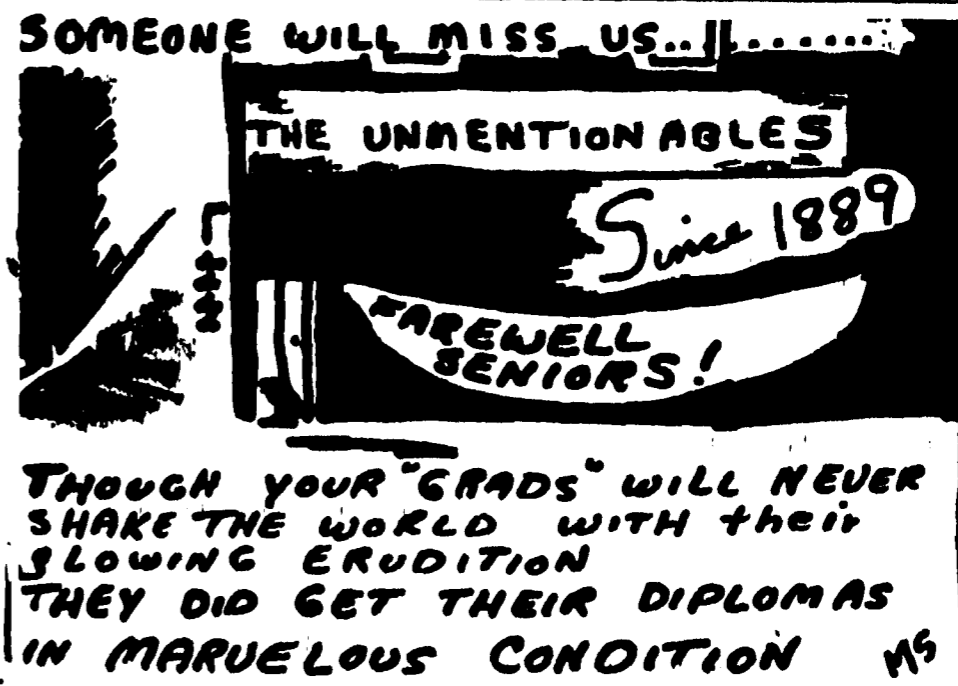 SOMEONE WILL MISS US...........
THE UNMENTIONABLES
Since 1889
FAREWELL
SENIORS!
THOUGH YOUR "GRADS" WILL NEVER
SHAKE THE WORLD WITH their
GLOWING ERUDITION
THEY DID GET THEIR DIPLOMAS
IN MARVELOUS CONDITION MS